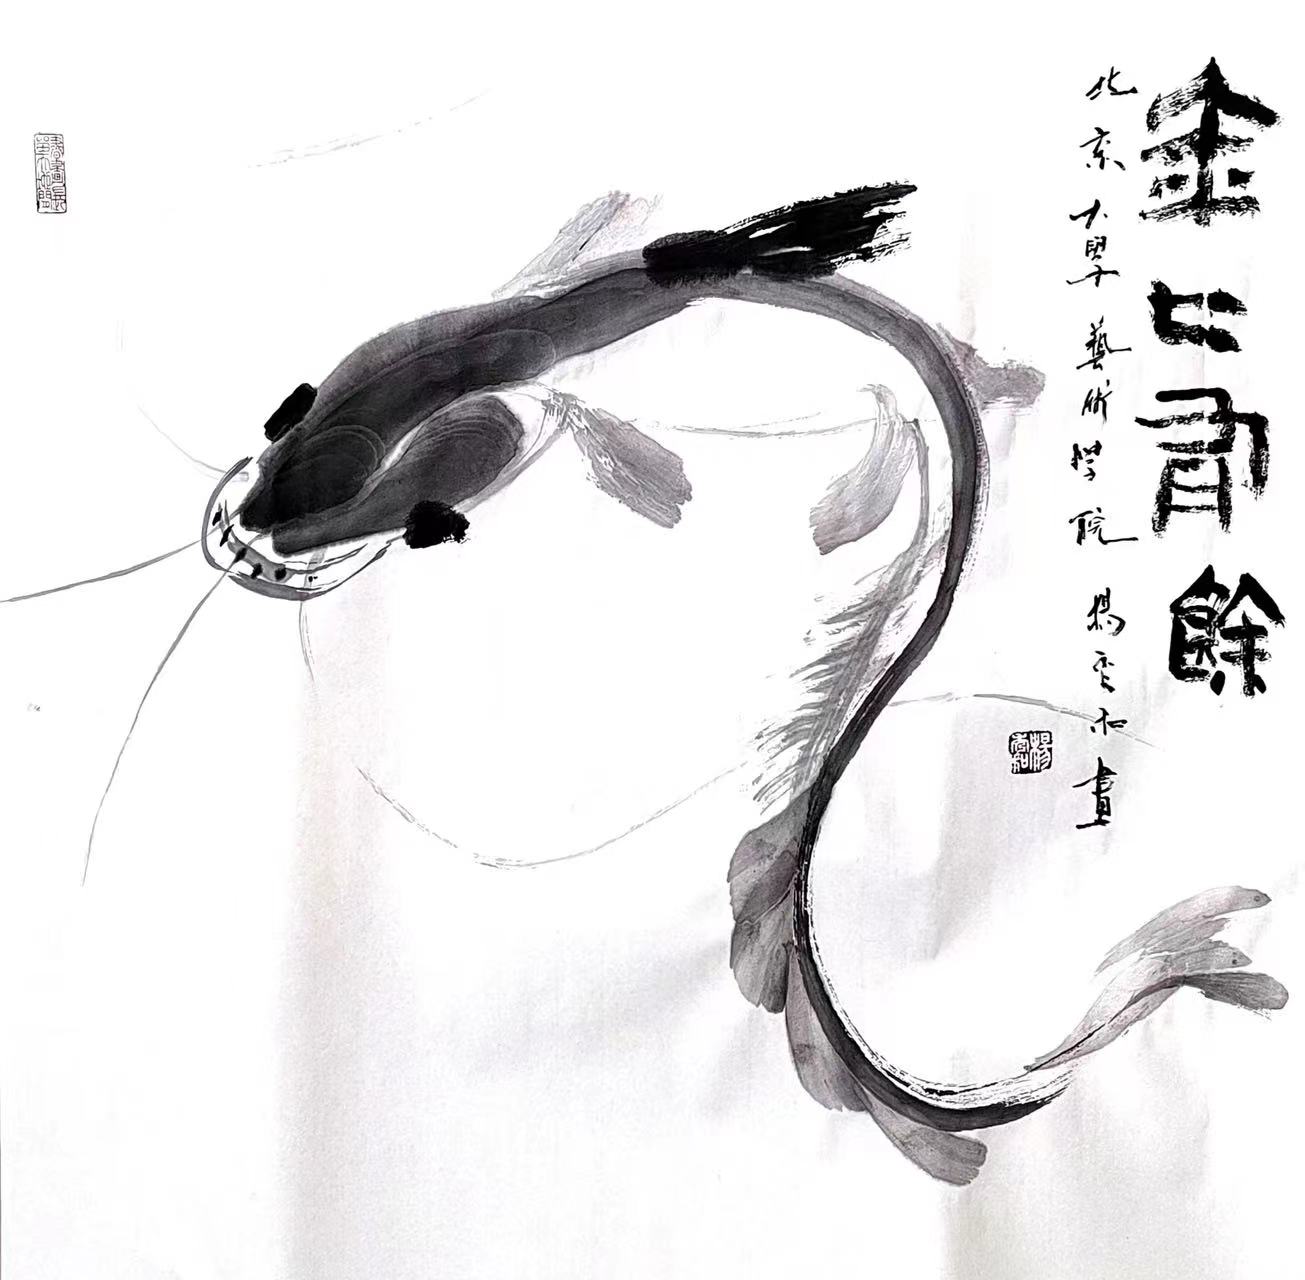 金〻有餘
北京大學藝術學院 楊和畫